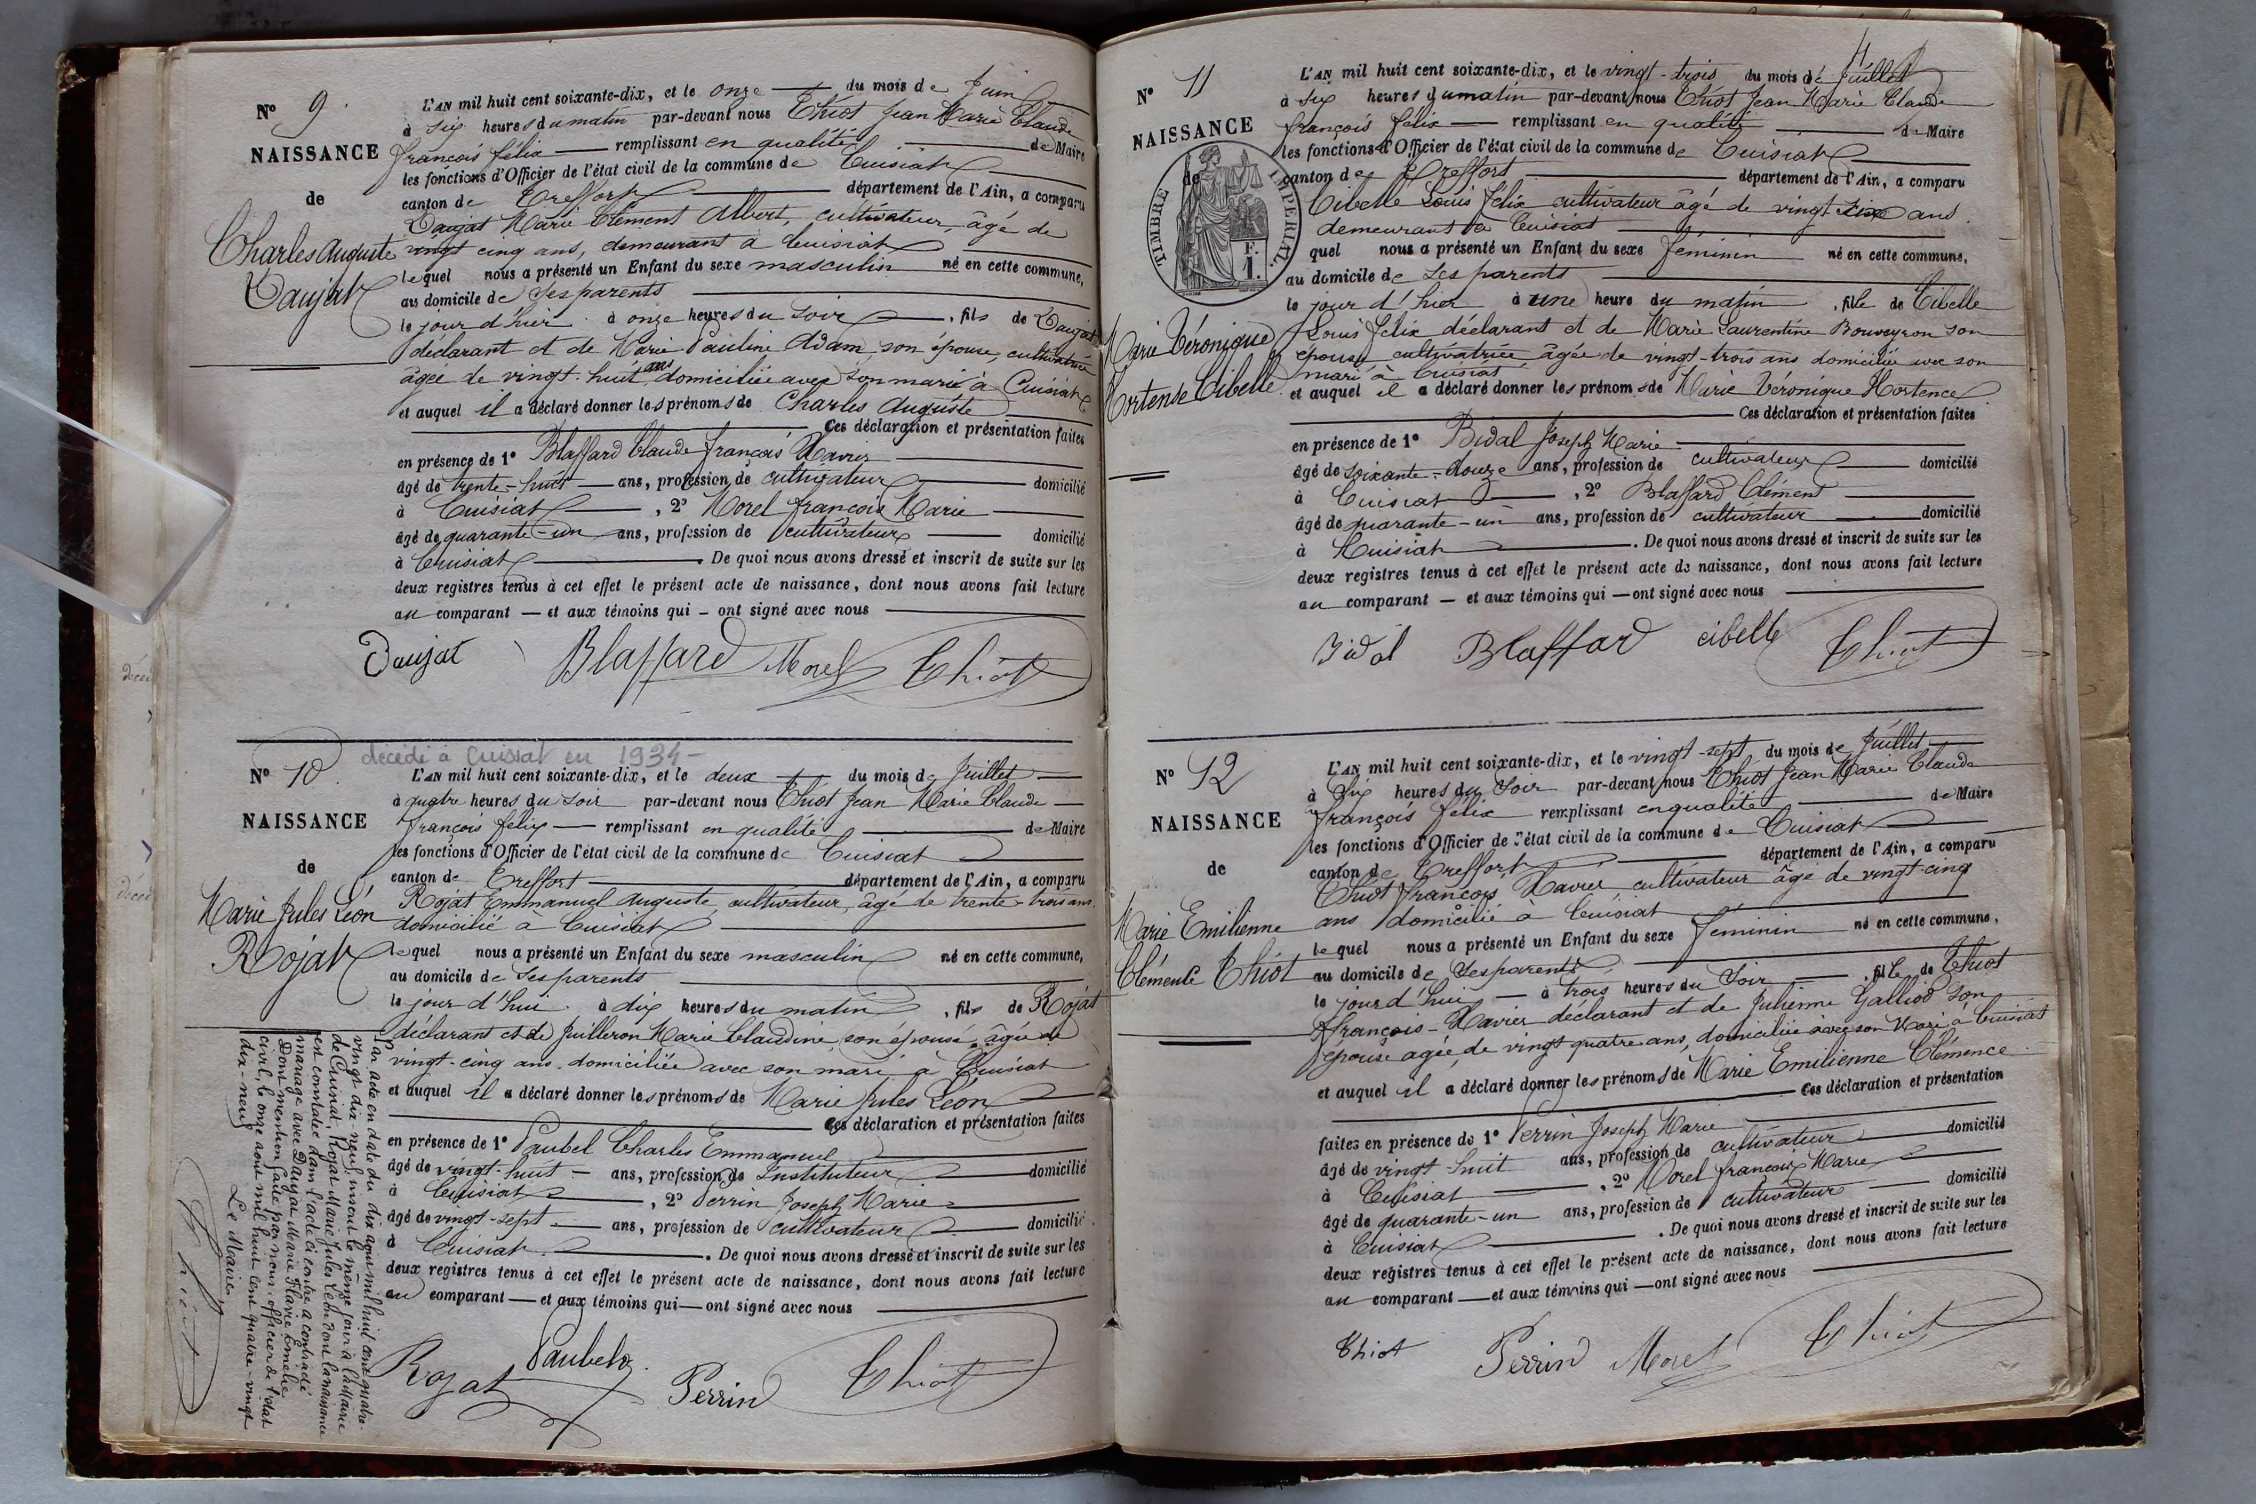 N° 9.
NAISSANCE
de
Charles Auguste
Daujat
L'AN mil huit cent soixante-dix, et le onze du mois de Juin
à six heures du matin par-devant nous Thiot Jean Marie Claude
françois félix remplissant en qualité de Maire
les fonctions d'Officier de l'état civil de la commune de Cuisiat
canton de Treffort département de l'Ain, a comparu
Daujat Marie Clément Albert, cultivateur, âgé de
vingt cinq ans, demeurant à Cuisiat
lequel nous a présenté un Enfant du sexe masculin né en cette commune,
au domicile de ses parents
le jour d'hier à onze heures du soir, fils de Daujat
déclarant et de Marie Pauline Adam, son épouse, cultivatrice
âgée de vingt-huit ans domiciliée avec son marié à Cuisiat
et auquel il a déclaré donner les prénoms de Charles Auguste
Ces déclaration et présentation faites
en présence de 1° Blaffard Claude françois Xavier
âgé de trente-huit ans, profession de cultivateur domicilié
à Cuisiat, 2° Morel françois Marie
âgé de quarante-un ans, profession de cultivateur domicilié
à Cuisiat. De quoi nous avons dressé et inscrit de suite sur les
deux registres tenus à cet effet le présent acte de naissance, dont nous avons fait lecture
au comparant — et aux témoins qui — ont signé avec nous
Daujat Blaffard Morel Thiot
décédé à Cuisiat en 1934 -
N° 10.
NAISSANCE
de
Marie Jules Léon
Rojat
L'AN mil huit cent soixante-dix, et le deux du mois de Juillet
à quatre heures du soir par-devant nous Thiot Jean Marie Claude
françois félix remplissant en qualité de Maire
les fonctions d'Officier de l'état civil de la commune de Cuisiat
canton de Treffort département de l'Ain, a comparu
Rojat Emmanuel Auguste, cultivateur, âgé de trente-trois ans,
domicilié à Cuisiat
lequel nous a présenté un Enfant du sexe masculin né en cette commune,
au domicile de ses parents
le jour d'hui à dix heures du matin, fils de Rojat
déclarant et de Juilleron Marie Claudine, son épouse, âgée de
vingt-cinq ans, domiciliée avec son mari à Cuisiat
et auquel il a déclaré donner les prénoms de Marie Jules Léon
Ces déclaration et présentation faites
en présence de 1° Paubel Charles Emmanuel
âgé de vingt-huit ans, profession de Instituteur domicilié
à Cuisiat, 2° Perrin Joseph Marie
âgé de vingt-sept ans, profession de cultivateur domicilié
à Cuisiat. De quoi nous avons dressé et inscrit de suite sur les
deux registres tenus à cet effet le présent acte de naissance, dont nous avons fait lecture
au comparant — et aux témoins qui — ont signé avec nous
Rojat Paubel Perrin Thiot
Par acte en date du dix août mil huit cent quatre-
vingt dix-neuf, inscrit le même jour à la Mairie
de Cuisiat, Rojat Marie Jules Léon dont la naissance
est constatée dans l'acte ci contre a contracté
mariage avec Daujat Marie Flavie Emélie
Dont mention faite par nous, officier de l'état
civil, le onze août mil huit cent quatre-vingt
dix-neuf
Le Maire
Thiot
N° 11
NAISSANCE
de
TIMBRE IMPERIAL
F.
1.
Marie Véronique
Hortense Cibelle
L'AN mil huit cent soixante-dix, et le vingt-trois du mois de Juillet
à six heures du matin par-devant nous Thiot Jean Marie Claude
françois félix remplissant en qualité de Maire
les fonctions d'Officier de l'état civil de la commune de Cuisiat
canton de Treffort département de l'Ain, a comparu
Cibelle Louis félix cultivateur âgé de vingt six ans
demeurant à Cuisiat
quel nous a présenté un Enfant du sexe féminin né en cette commune,
au domicile de ses parents
le jour d'hier à une heure du matin, fille de Cibelle
Louis félix déclarant et de Marie Laurentine Bouveyron son
épouse cultivatrice âgée de vingt-trois ans domiciliée avec son
mari à Cuisiat
et auquel il a déclaré donner les prénoms de Marie Véronique Hortence
Ces déclaration et présentation faites
en présence de 1° Bidal Joseph Marie
âgé de soixante-douze ans, profession de cultivateur domicilié
à Cuisiat, 2° Blaffard Clément
âgé de quarante-un ans, profession de cultivateur domicilié
à Cuisiat. De quoi nous avons dressé et inscrit de suite sur les
deux registres tenus à cet effet le présent acte de naissance, dont nous avons fait lecture
au comparant — et aux témoins qui — ont signé avec nous
Bidal Blaffard cibelle Thiot
N° 12
NAISSANCE
de
Marie Emilienne
Clémence Thiot
L'AN mil huit cent soixante-dix, et le vingt-sept du mois de Juillet
à six heures du soir par-devant nous Thiot Jean Marie Claude
françois félix remplissant en qualité de Maire
les fonctions d'Officier de l'état civil de la commune de Cuisiat
canton de Treffort département de l'Ain, a comparu
Thiot françois Xavier, cultivateur âgé de vingt-cinq
ans domicilié à Cuisiat
lequel nous a présenté un Enfant du sexe féminin né en cette commune,
au domicile de ses parents
le jour d'hui à trois heures du soir, fille de Thiot
françois-Xavier déclarant et de Julienne Galliod son
épouse agée de vingt quatre ans, domiciliée avec son Mari à Cuisiat
et auquel il a déclaré donner les prénoms de Marie Emilienne Clémence
Ces déclaration et présentation
faites en présence de 1° Perrin Joseph Marie
âgé de vingt huit ans, profession de cultivateur domicilié
à Cuisiat, 2° Morel françois Marie
âgé de quarante-un ans, profession de cultivateur domicilié
à Cuisiat. De quoi nous avons dressé et inscrit de suite sur les
deux registres tenus à cet effet le présent acte de naissance, dont nous avons fait lecture
au comparant — et aux témoins qui — ont signé avec nous
Thiot Perrin Morel Thiot